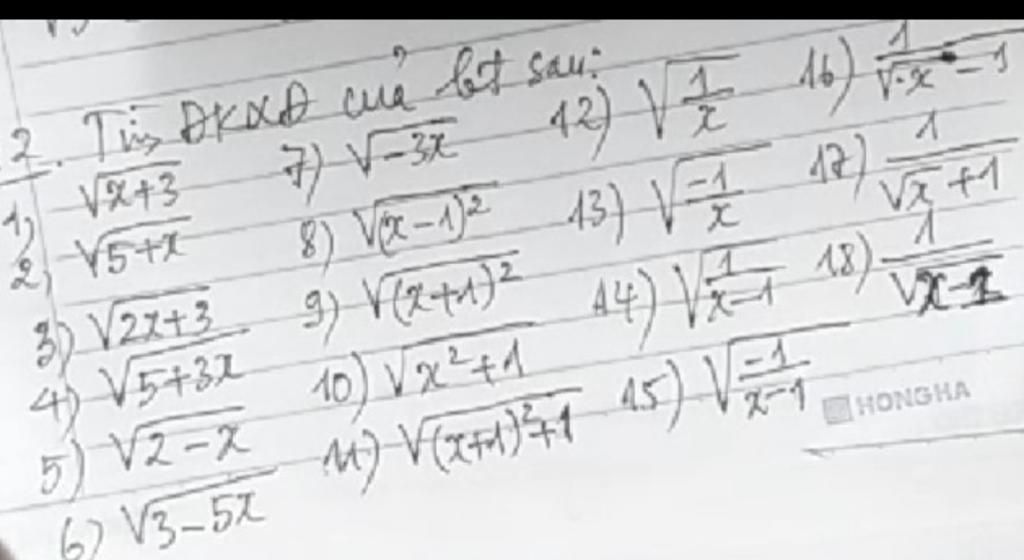 2. Tìm ĐKXĐ của bt sau:
1) √(x+3)
2) √(5+x)
3) √(2x+3)
4) √(5+3x)
5) √(2-x)
6) √(3-5x)
7) √(-3x)
8) √((x-1)²)
9) √((x+1)²)
10) √(x²+1)
11) √((x+1)²+1)
12) √(1/x)
13) √(-1/x)
14) √(1/(x-1))
15) √(-1/(x-1))
17) 1/(√x+1)
HONGHA